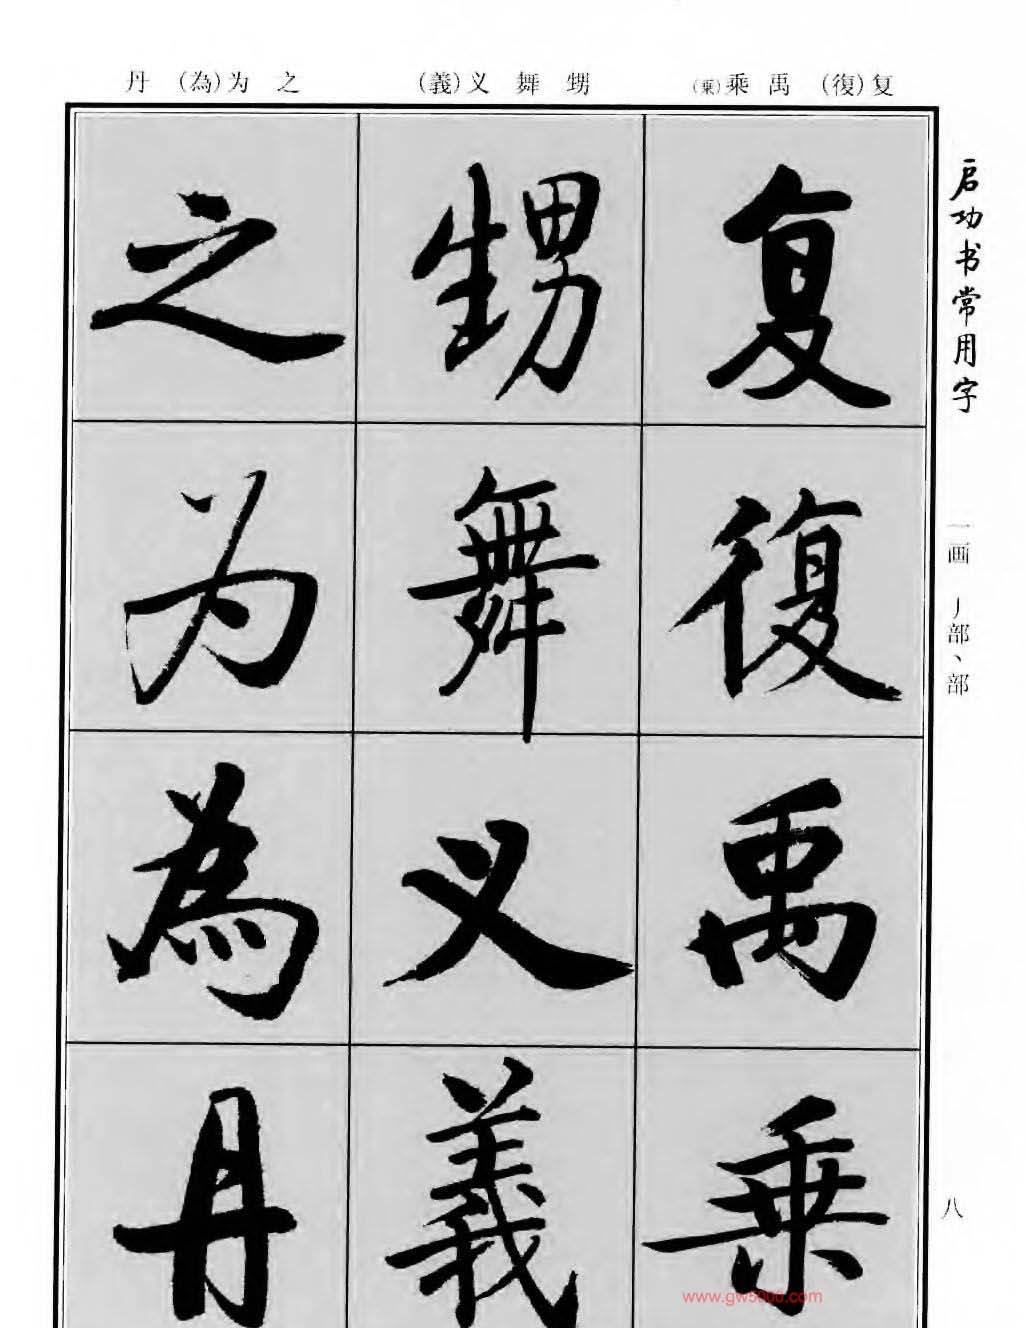 复(復) 禹 乘(椉)
甥 舞 义(義)
之 为(為) 丹
启功书常用字
一画 丿部丶部
八
复
復
禹
乘
甥
舞
义
義
之
为
為
丹
www.gw5000.com